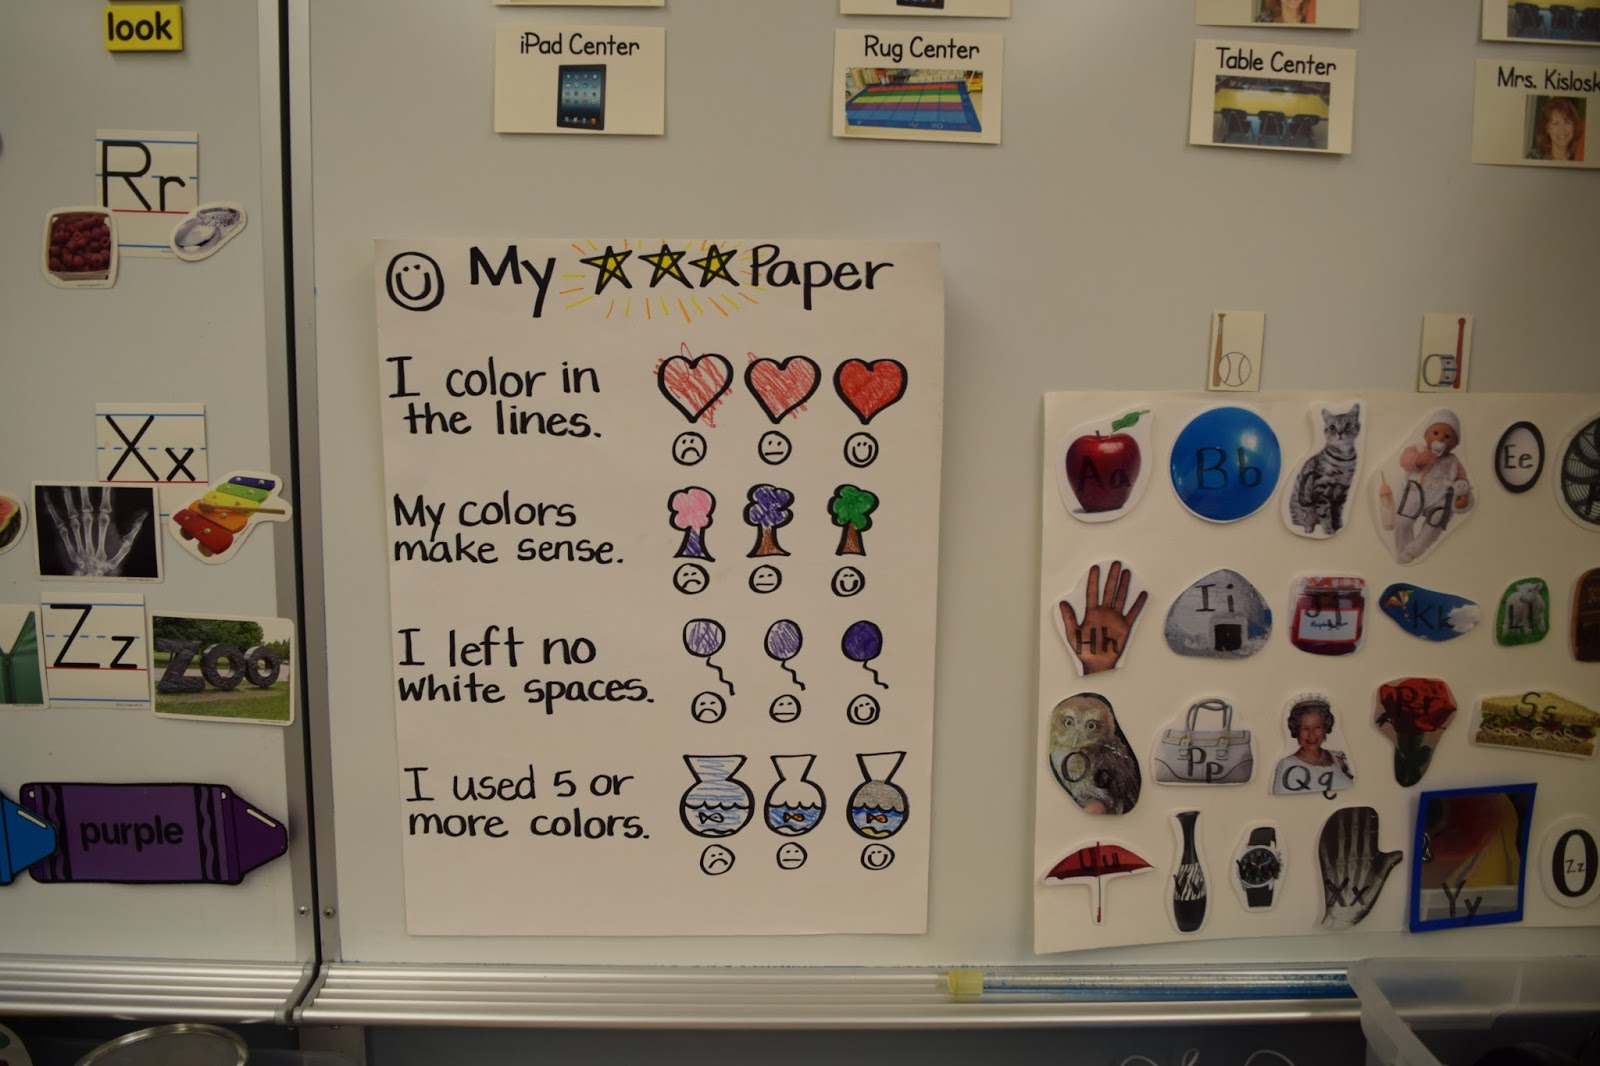 look
iPad Center
Rug Center
Table Center
Mrs. Kislosk
Rr
Xx
Zz
ZOO
purple
My Paper
I color in
the lines.
My colors
make sense.
I left no
white spaces.
I used 5 or
more colors.
Aa
Bb
Dd
Ee
Hh
Ii
Jj
Kk
Ll
Oo
Pp
Qq
Rr
Ss
Uu
Xx
Yy
Zz